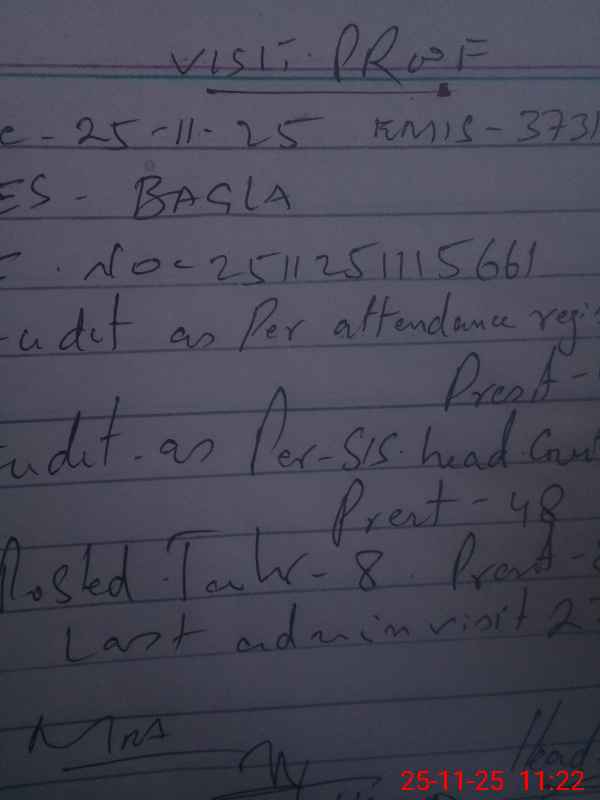 VISIT PROOF
e - 25-11-25 EMIS - 3731
ES - BAGLA
. NO - 2511251115661
udit as Per attendance regi
Present -
udit as Per SIS head Cou
Present - 48
Posted - 8 Present -
Last admin visit 2
MNA
Head
25-11-25 11:22